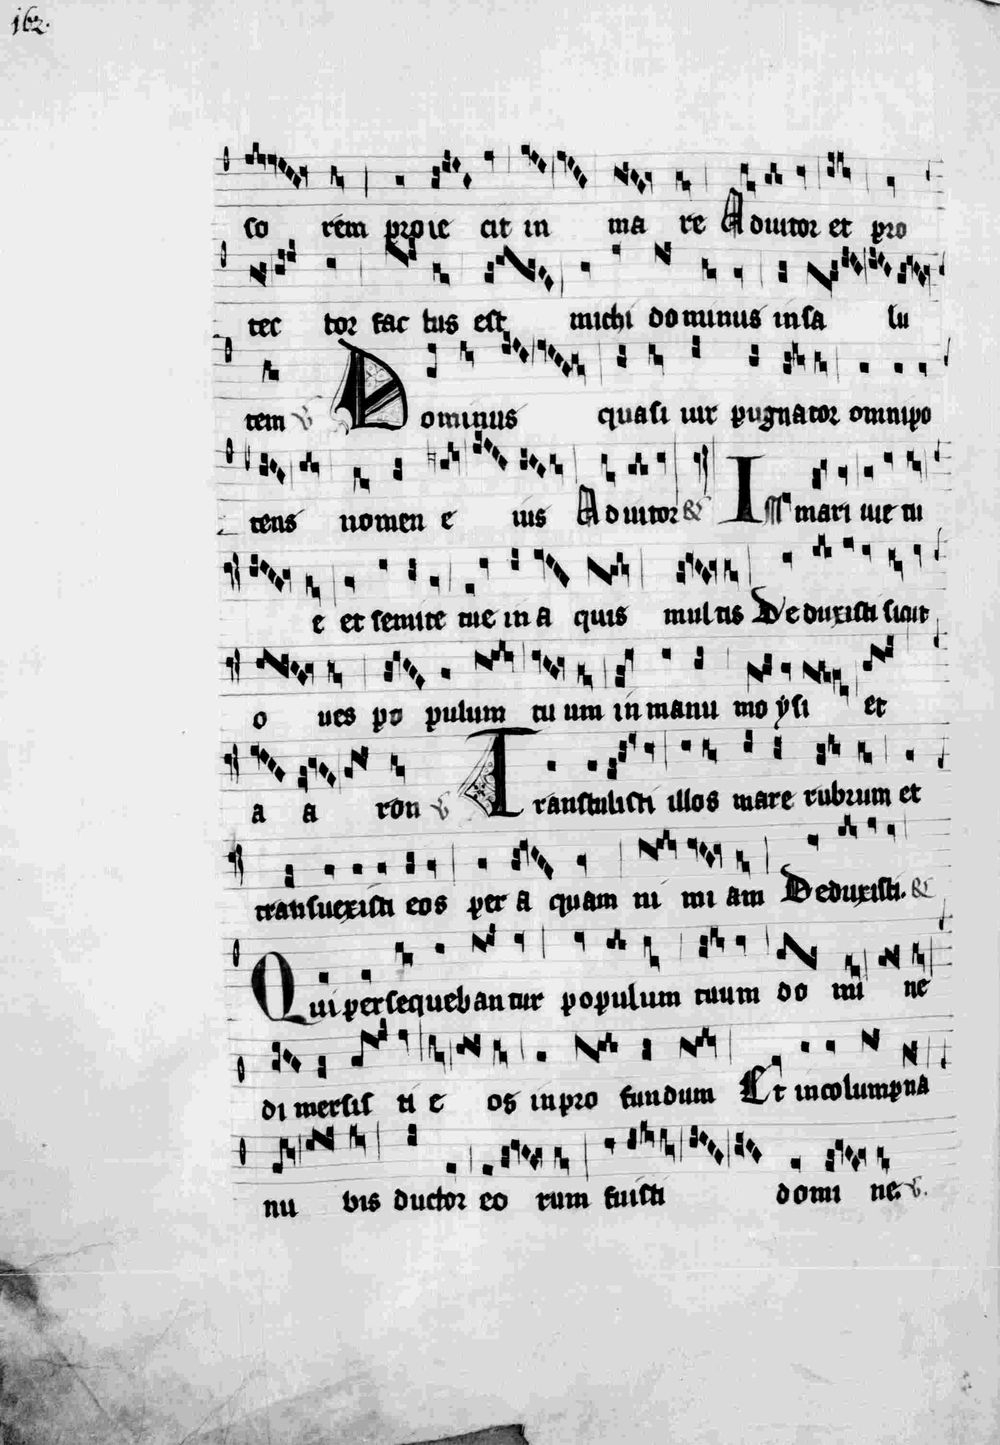 162.
so rem proie cit in ma re Adiutor et pro
tec tor fac tus est michi dominus in sa lu
tem ℣ Dominus quasi uir pugnator omnipo
tens nomen e ius Adiutor & In mari uie tu
e et semite tue in a quis multis Deduxisti sicut
o ues po pulum tu um in manu mo ysi et
a a ron ℣ Transtulisti illos mare rubrum et
transuexisti eos per a quam ni mi am Deduxisti. &
Qui persequebantur populum tuum do mi ne
di mersis ti e os in pro fundum Et in columpna
nu bis ductor eo rum fuisti domi ne. ℣.